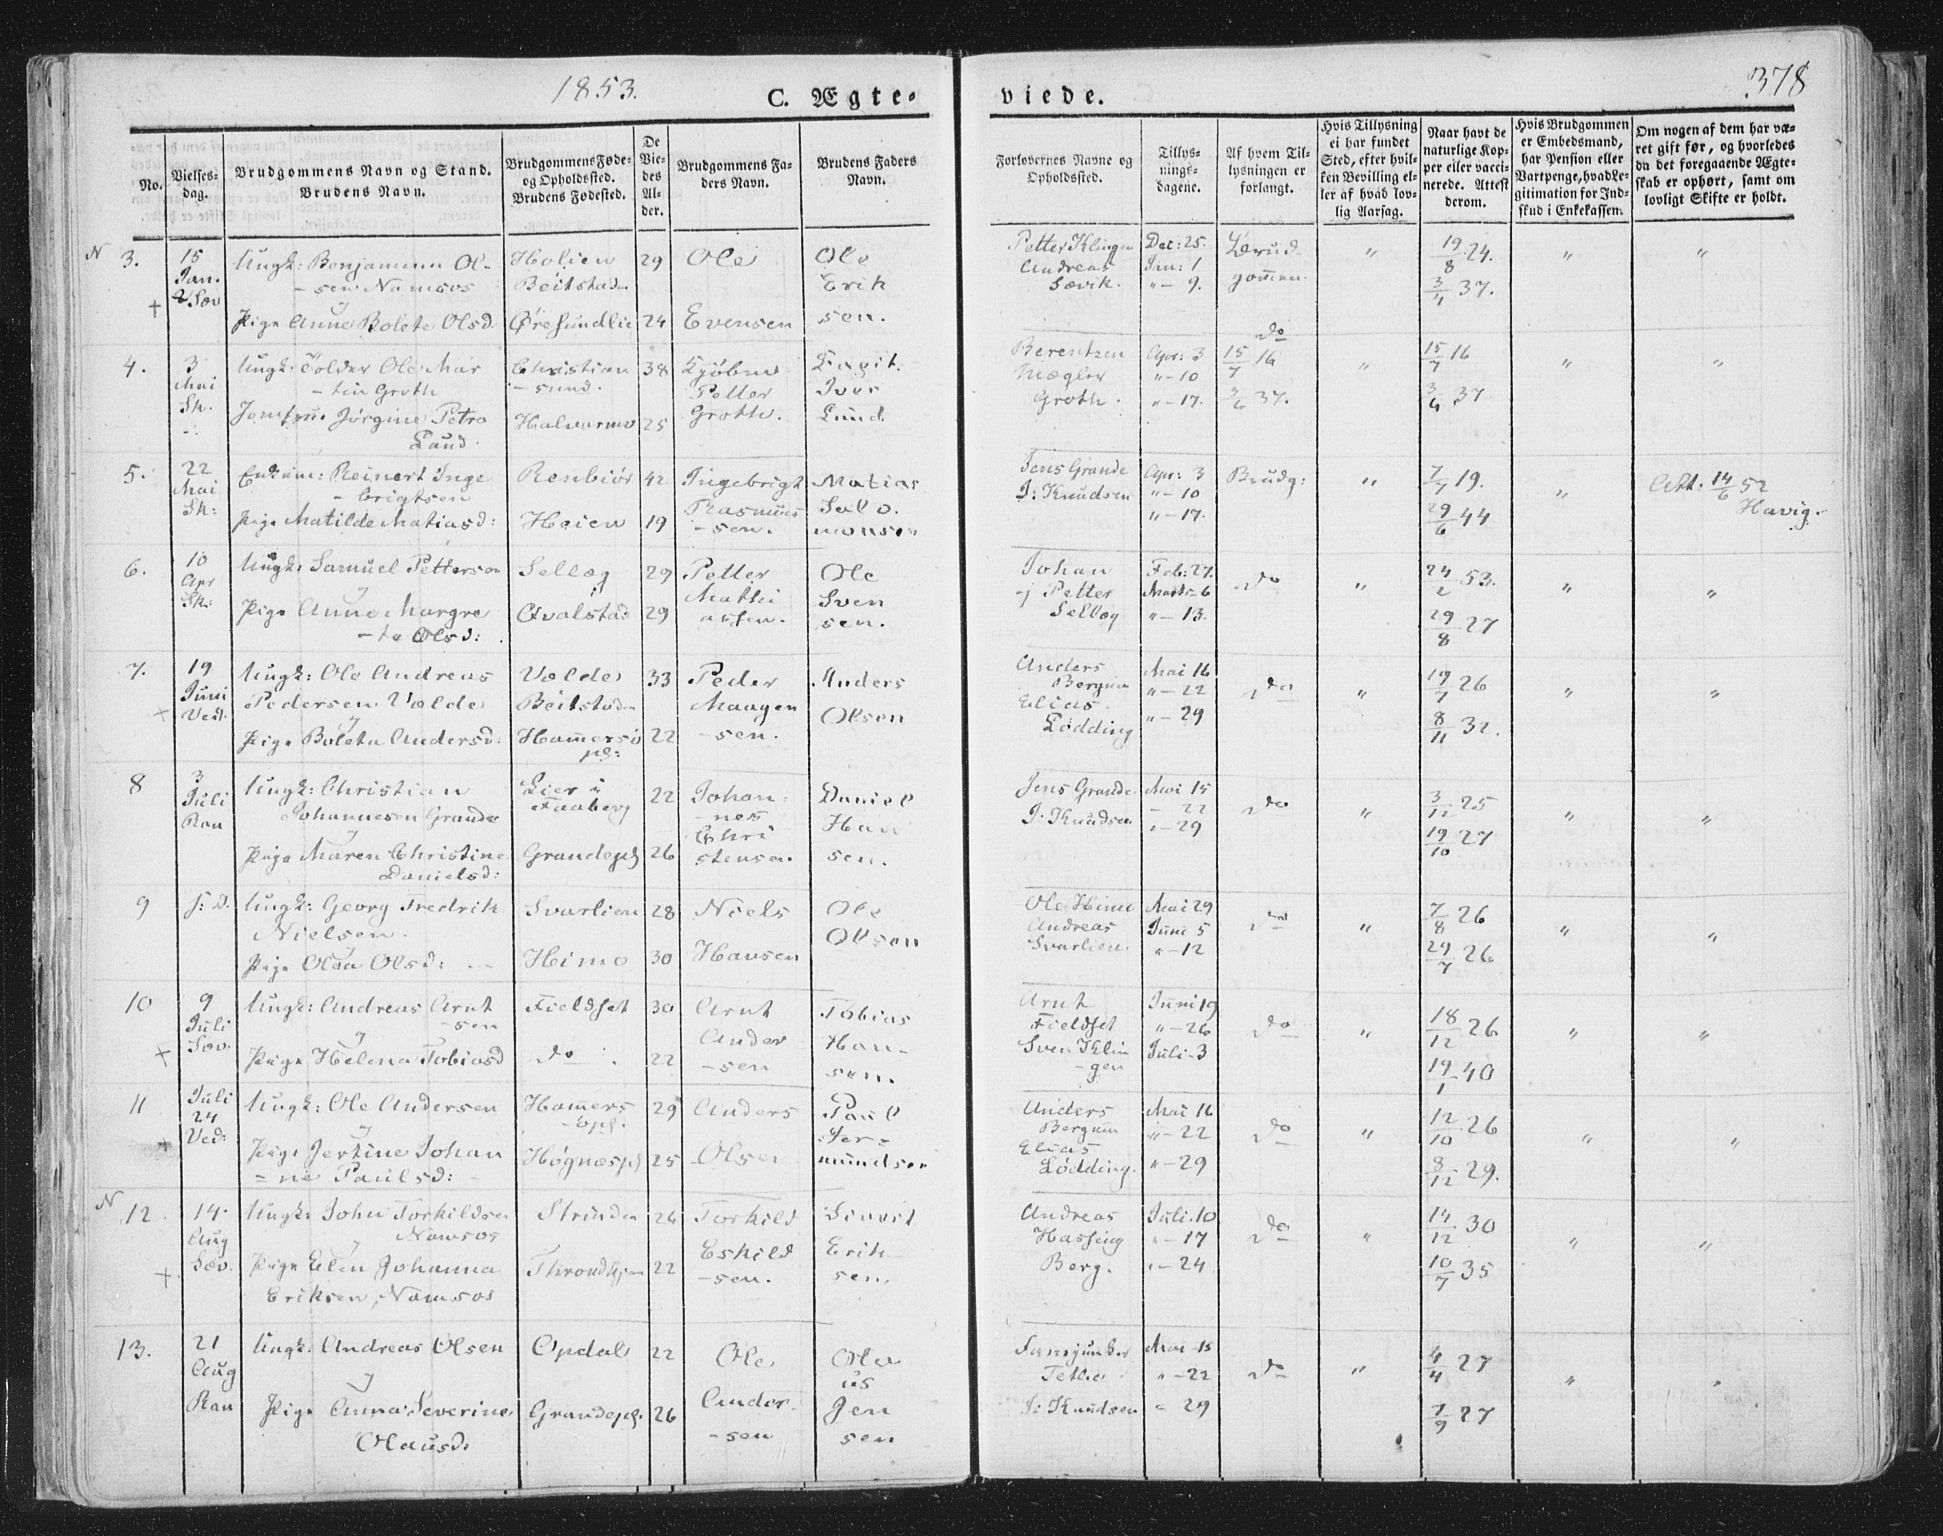 1853.
C. Ægte-
viede.
378
No.
Vielses-
dag.
Brudgommens Navn og Stand.
Brudens Navn.
Brudgommens Føde-
og Opholdssted.
Brudens Fødested.
De
Vie-
des
Al-
der.
Brudgommens Fa-
ders Navn.
Brudens Faders
Navn.
Forlovernes Navne og
Opholdssted.
Tillys-
nings-
dagene.
Af hvem Til-
lysningen er
forlangt.
Hvis Tillysning
ei har fundet
Sted, efter hvil-
ken Bevilling el-
ler af hvad lov-
lig Aarsag.
Naar havt de
naturlige Kop-
per eller vacci-
nerede. Attest
derom.
Hvis Brudgommen
er Embedsmand,
har Pension eller
Vartpenge, hvad Le-
gitimation for Ind-
skud i Enkekassen.
Om nogen af dem har væ-
ret gift før, og hvorledes
da det foregaaende Ægte-
skab er ophørt, samt om
lovligt Skifte er holdt.
N 3.
15
Jan.
Sæv
+
Ungk: Benjamin Ol-
-sen Namsos
&
Pige Anne Bolete Olsd.
Holien
Beitstad
29
24
Ole
Evensen
Ole
Erik
sen.
Petter Klingen
Andreas
Sævik.
Dec: 25.
Jan: 1
"- 9.
gommen.
"
19/8 24.
3/4 37.
"
"
4.
3
Mai
Sk.
Ungk: Tolder Ole Mar
-tin Groth
Jomfrue Jørgine Petra
Christian
-sund.
38
25
Petter
Groth.
Iver
Lund
Berentzen
Mægler
Groth.
Apr: 3
"-10
"-17.
do
15/7 16
3/6 37.
"
15/7 16
3/6 37
"
"
5.
22
Mai
Sk:
Enkem: Reinert Inge
-brigtsen
Pige Matilde Matiasd:
Renbiør
Heien
42
19
Ingebrigt
Rasmus
-sen.
Matias
Salo
monsen
Jens Grande
J: Knudsen
Apr: 3
"-10
"-17.
Brudg:
"
7/7 19.
29/6 44
"
Att. 14/6 52
Havig.
6.
10
Apr
Sk:
Ungk: Samuel Petterson
&
Pige Anne Margre
-te Olsd:
Selleg
Qvalstad
29
29
Petter
Mathi
assen.
Ole
Sven
sen.
Johan
Petter
Selbog
Feb: 27.
Marts-6
"-13.
do
"
24/2 53.
29/8 27
"
"
7.
19
Juni
Ved.
+
Ungk: Ole Andreas
Pedersen Valde
&
Pige Boleta Andersd:
Valde
Beitstaden
33
22
Peder
Maagen
-sen.
Anders
Olsen
Anders
Elias
Lødding
Mai 16
"-22
"-29
do
"
19/7 26
8/11 32.
"
"
8
3
Juli
Ran
Ungk: Christian
Johannesen Grande
&
Pige Maren Christine
Danielsd:
Lier i
Faaberg
Grandepl
22
26
Johan
nes
Chri
stensen.
Daniel
Han
sen.
Jens Grande
J: Knudsen
Mai 15
- 22
"-29
do
"
3/12 25
19/10 27
"
"
9
s: D.
Ungk: Georg Fredrik
Nielsen.
&
Pige Olsa Olsd:
Svarlien
Himo
28
30
Niels
Hansen
Ole
Olsen
Ole Himo
Andreas
Svarlien
Mai 29
Juni 5
"-12
do
"
7/8 26
29/7 26
"
"
10
9
Juli
Sæv.
+
Ungk: Andreas Arnt
-sen
&
Pige Helena Tobiasd
Fieldset
do
30
22
Arnt
Ander
-sen
Tobias
Han-
sen.
Arnt
Fieldset
Sven Klin
-gen
Juni 19
"-26
Juli-3
do
"
18/12 26
19/1 40
"
"
11
Juli
24
Ved:
+
Ungk: Ole Andersen
&
Pige Jertine Johan
=ne Paulsd:
Høgnæspl
29
25
Anders
Olsen
Paul
Jer=
mundsen
Anders
Elias
Lødding.
Mai 16
"-22
"-29
do
"
12/10 26
8/12 29.
"
"
N 12
14.
Aug
Sæv.
+
Ungk: John Torkildsen
Namsos
&
Pige Elen Johanna
Eriksen, Namsos
Strinden
Throndhjem
26
22
Torkild
Eskild
-sen.
Sivert
Erik
sen.
Andreas
Hassing
Berg.
Juli 10
"-17
"-24
do
"
14/12 30
10/7 35
"
"
13.
21
Aug
Ran
Ungk: Andreas Olsen
&
Pige Anna Severine
Olausd:
Opdal
Grandepl.
22
26
Ole
Ander-
-sen
Ola
us
Jen
sen
Fanejunker
Tetlie
J: Knudsen
Mai 15
"-22
"-29
do
"
4/4 27
7/9 27
"
"